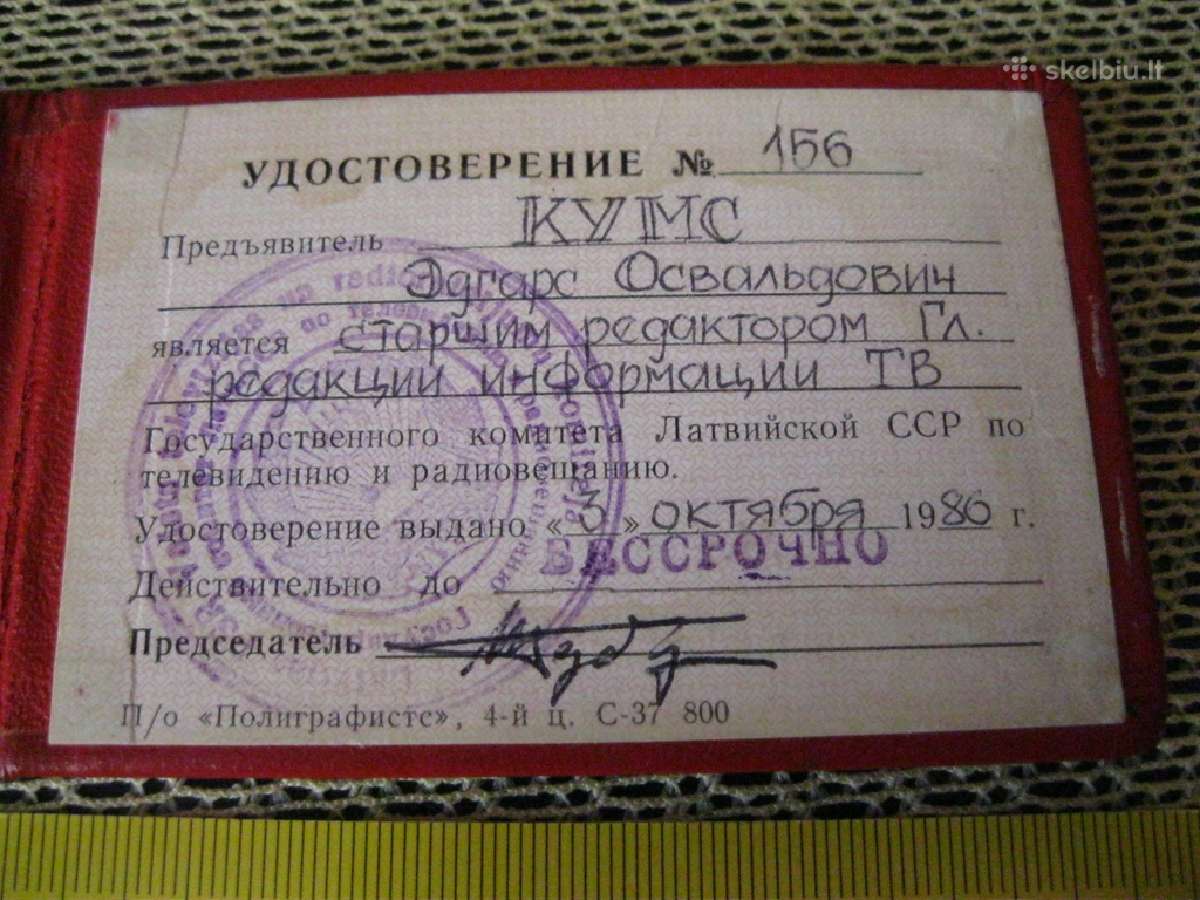 skelbiu.lt
УДОСТОВЕРЕНИЕ № 156
Предъявитель КУМС
Эдгарс Освальдович
является старшим редактором Гл.
редакции информации ТВ
Государственного комитета Латвийской ССР по
телевидению и радиовещанию.
Удостоверение выдано «3» октября 1986 г.
БЕССРОЧНО
Действительно до
Председатель
П/о «Полиграфистс», 4-й ц. С-37 800